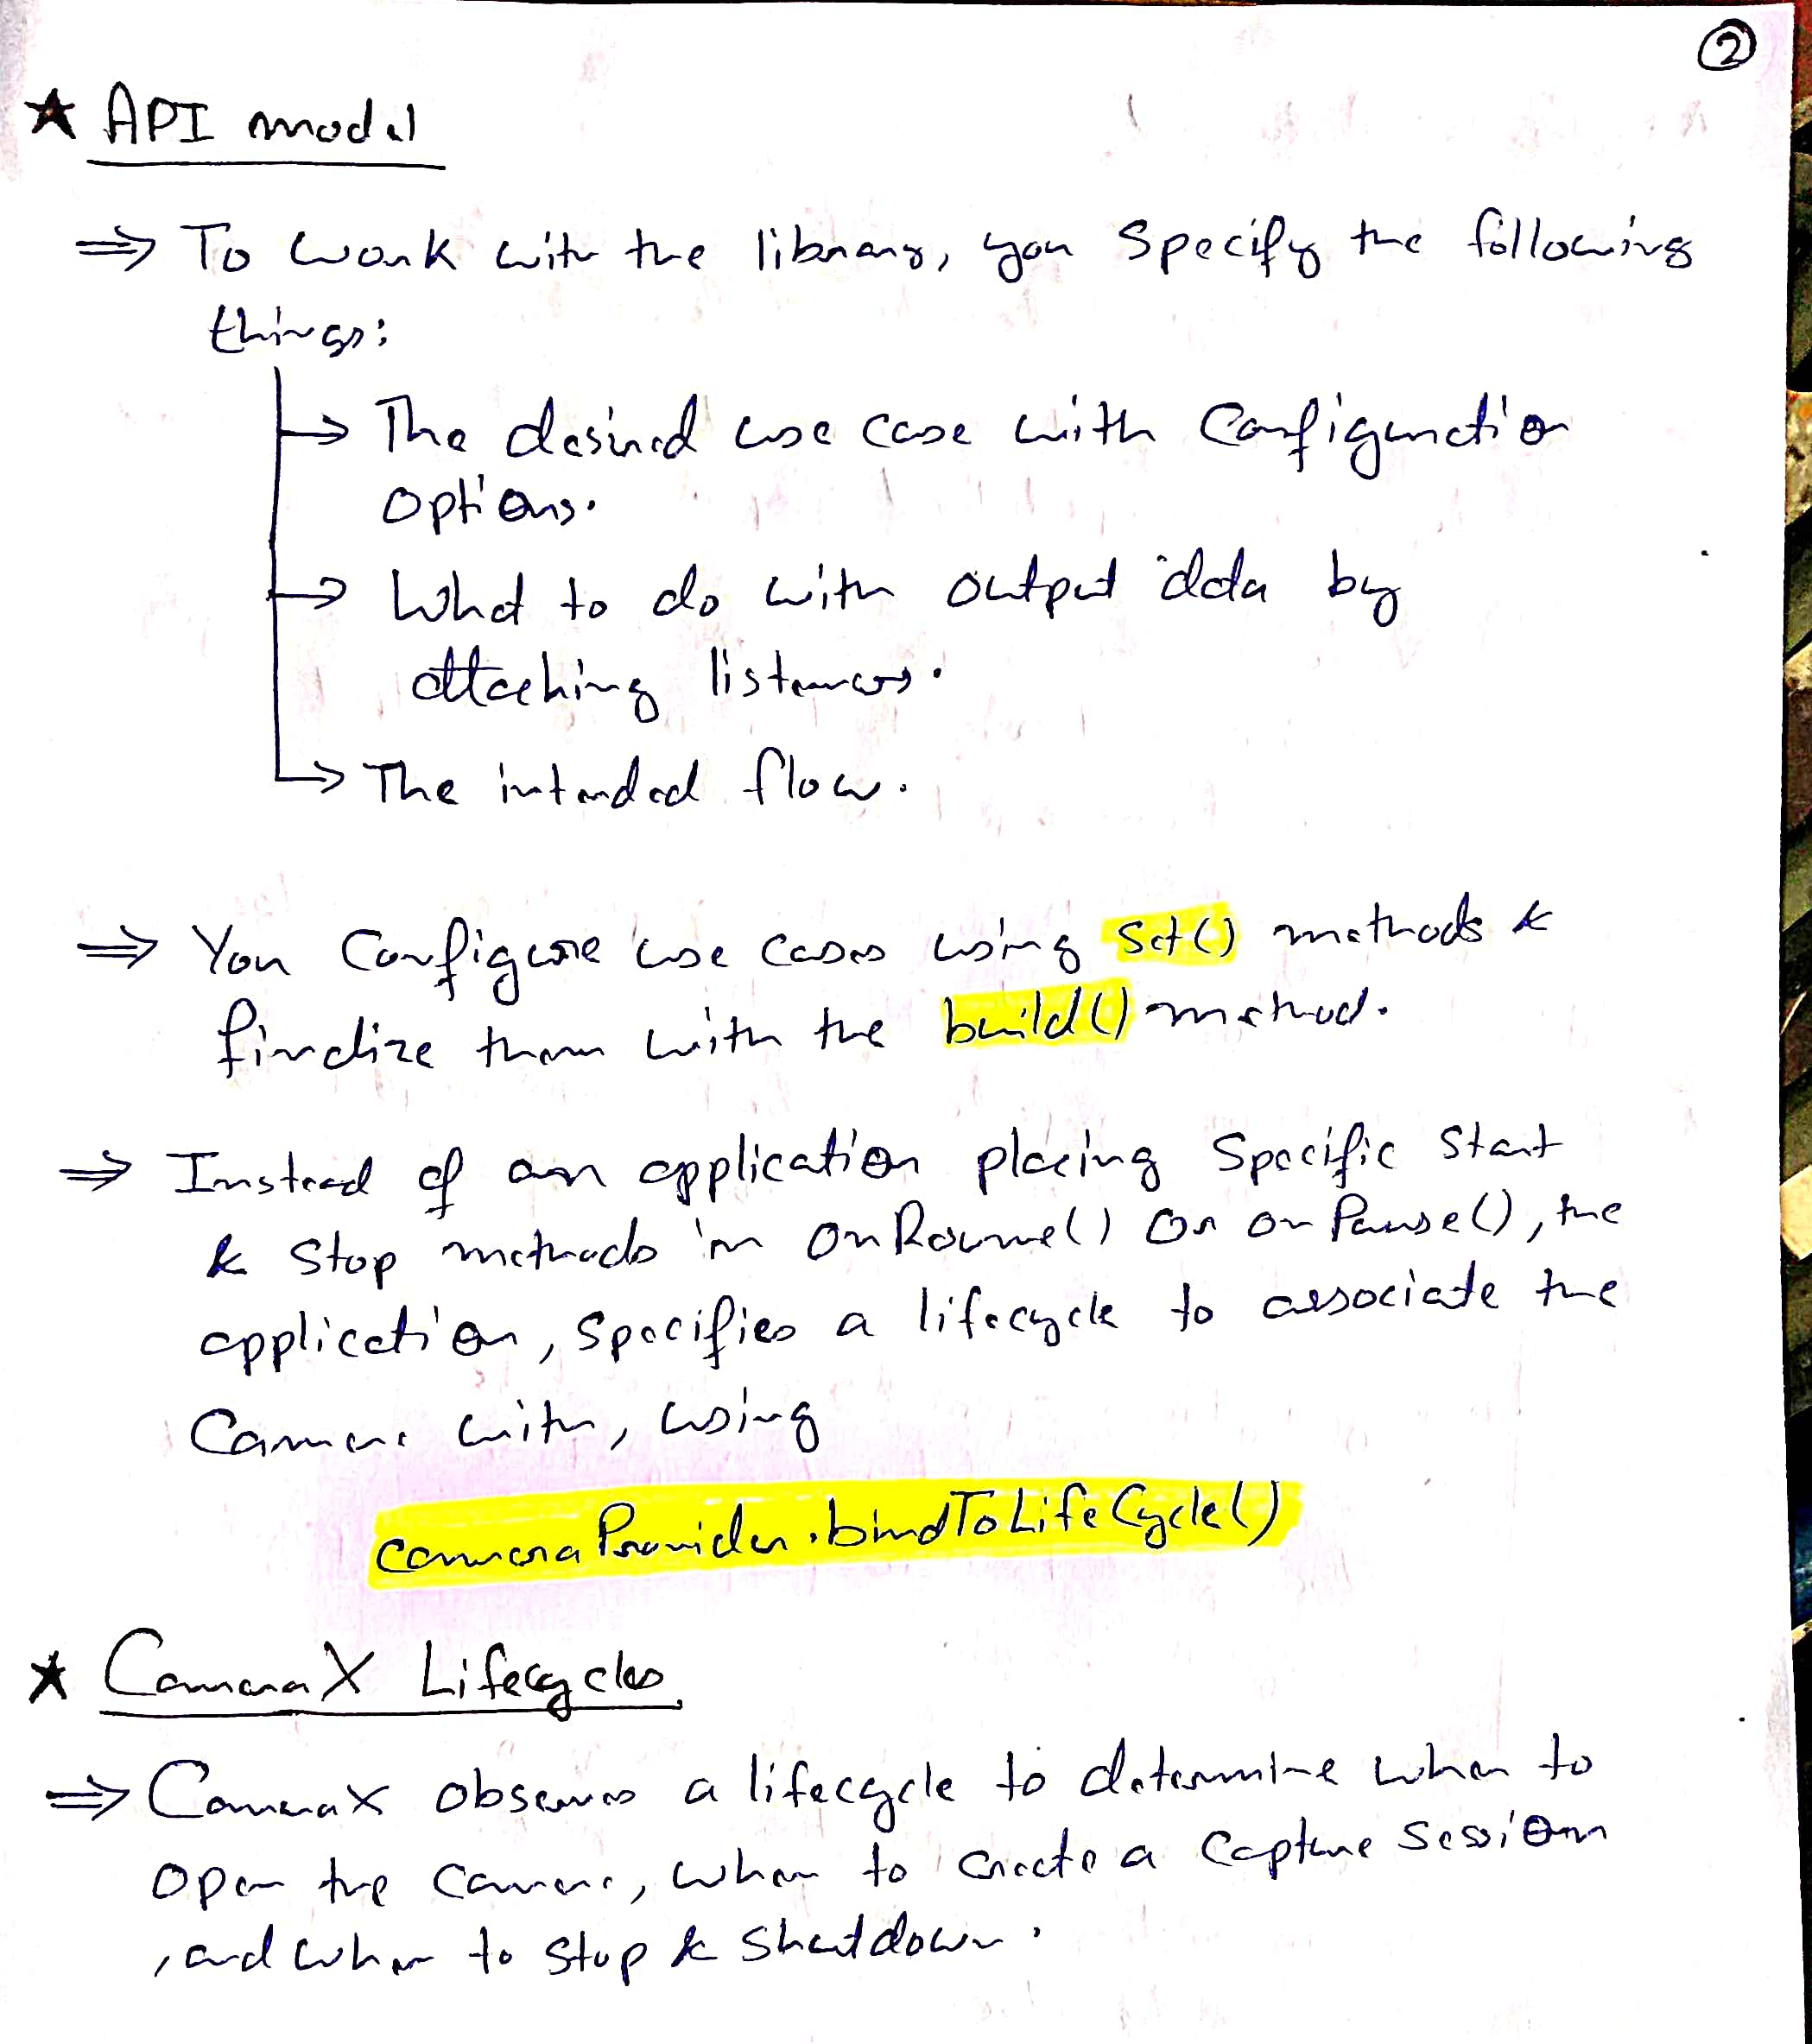 ②
★ API model
⇒ To work with the library, you specify the following
things:
→ The desired use case with Configuration
options.
→ What to do with output data by
attaching listeners.
→ The intended flow.
⇒ You Configure use cases using set() methods &
finalize them with the build() method.
⇒ Instead of an application placing Specific Start
& Stop methods in onResume() or onPause(), the
application, specifies a lifecycle to associate the
Camera with, using
cameraProvider.bindToLifeCycle()
★ CameraX Lifecycles
⇒ CameraX observes a lifecycle to determine when to
open the camera, when to create a capture session
, and when to stop & shutdown.